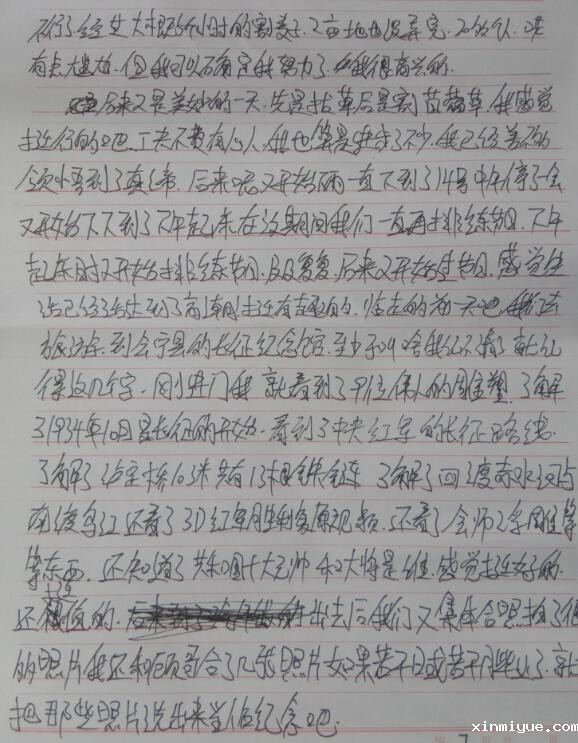 不行了,经过大概8小时的割麦子,2亩地也没弄完,20多个人,哎
有点尴尬,但我可以确定我努力了,我很高兴的.
后来又是美妙的一天,先是拔草后是割苜蓿草,我感觉
挺行的吧,工夫不费有心人,我也算是进步了不少,我已经差不多
领悟到了真谛,后来呢又开始下雨一直下到了14号中午停了一会
又开始下下到了下午起床在这期间我们一直再排练节目,下午
起床时又开始排练节目,反反复复,后来又开始生节目,感觉生
活已经达到了高潮,挺有意思的.临走的前一天吧,我们去
旅游,到会宁县的长征纪念馆,至少叫啥我记不清了就记
得这几个字.刚进门我就看到了9位伟人的雕塑,了解
了1934年10月是长征的开始.看到了中央红军的长征路线.
了解了泸定桥103米共有13根铁链 了解了四渡赤水河与
南渡乌江还看了3D红军胜利复原视频,还看了会师之字雕等
等东西,还知道了共和国十大元帅和大将是谁,感觉挺好的.
还挺值的.出去后我们又集体合照拍了很
的照片我还和顾哥合了几张照片如果若干日或若干月毕业了,就
把那些照片洗出来当作纪念吧.
xinmiyue.com